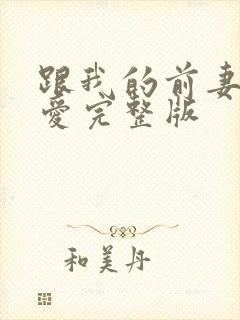 跟我的前妻
爱完整版
和美丹